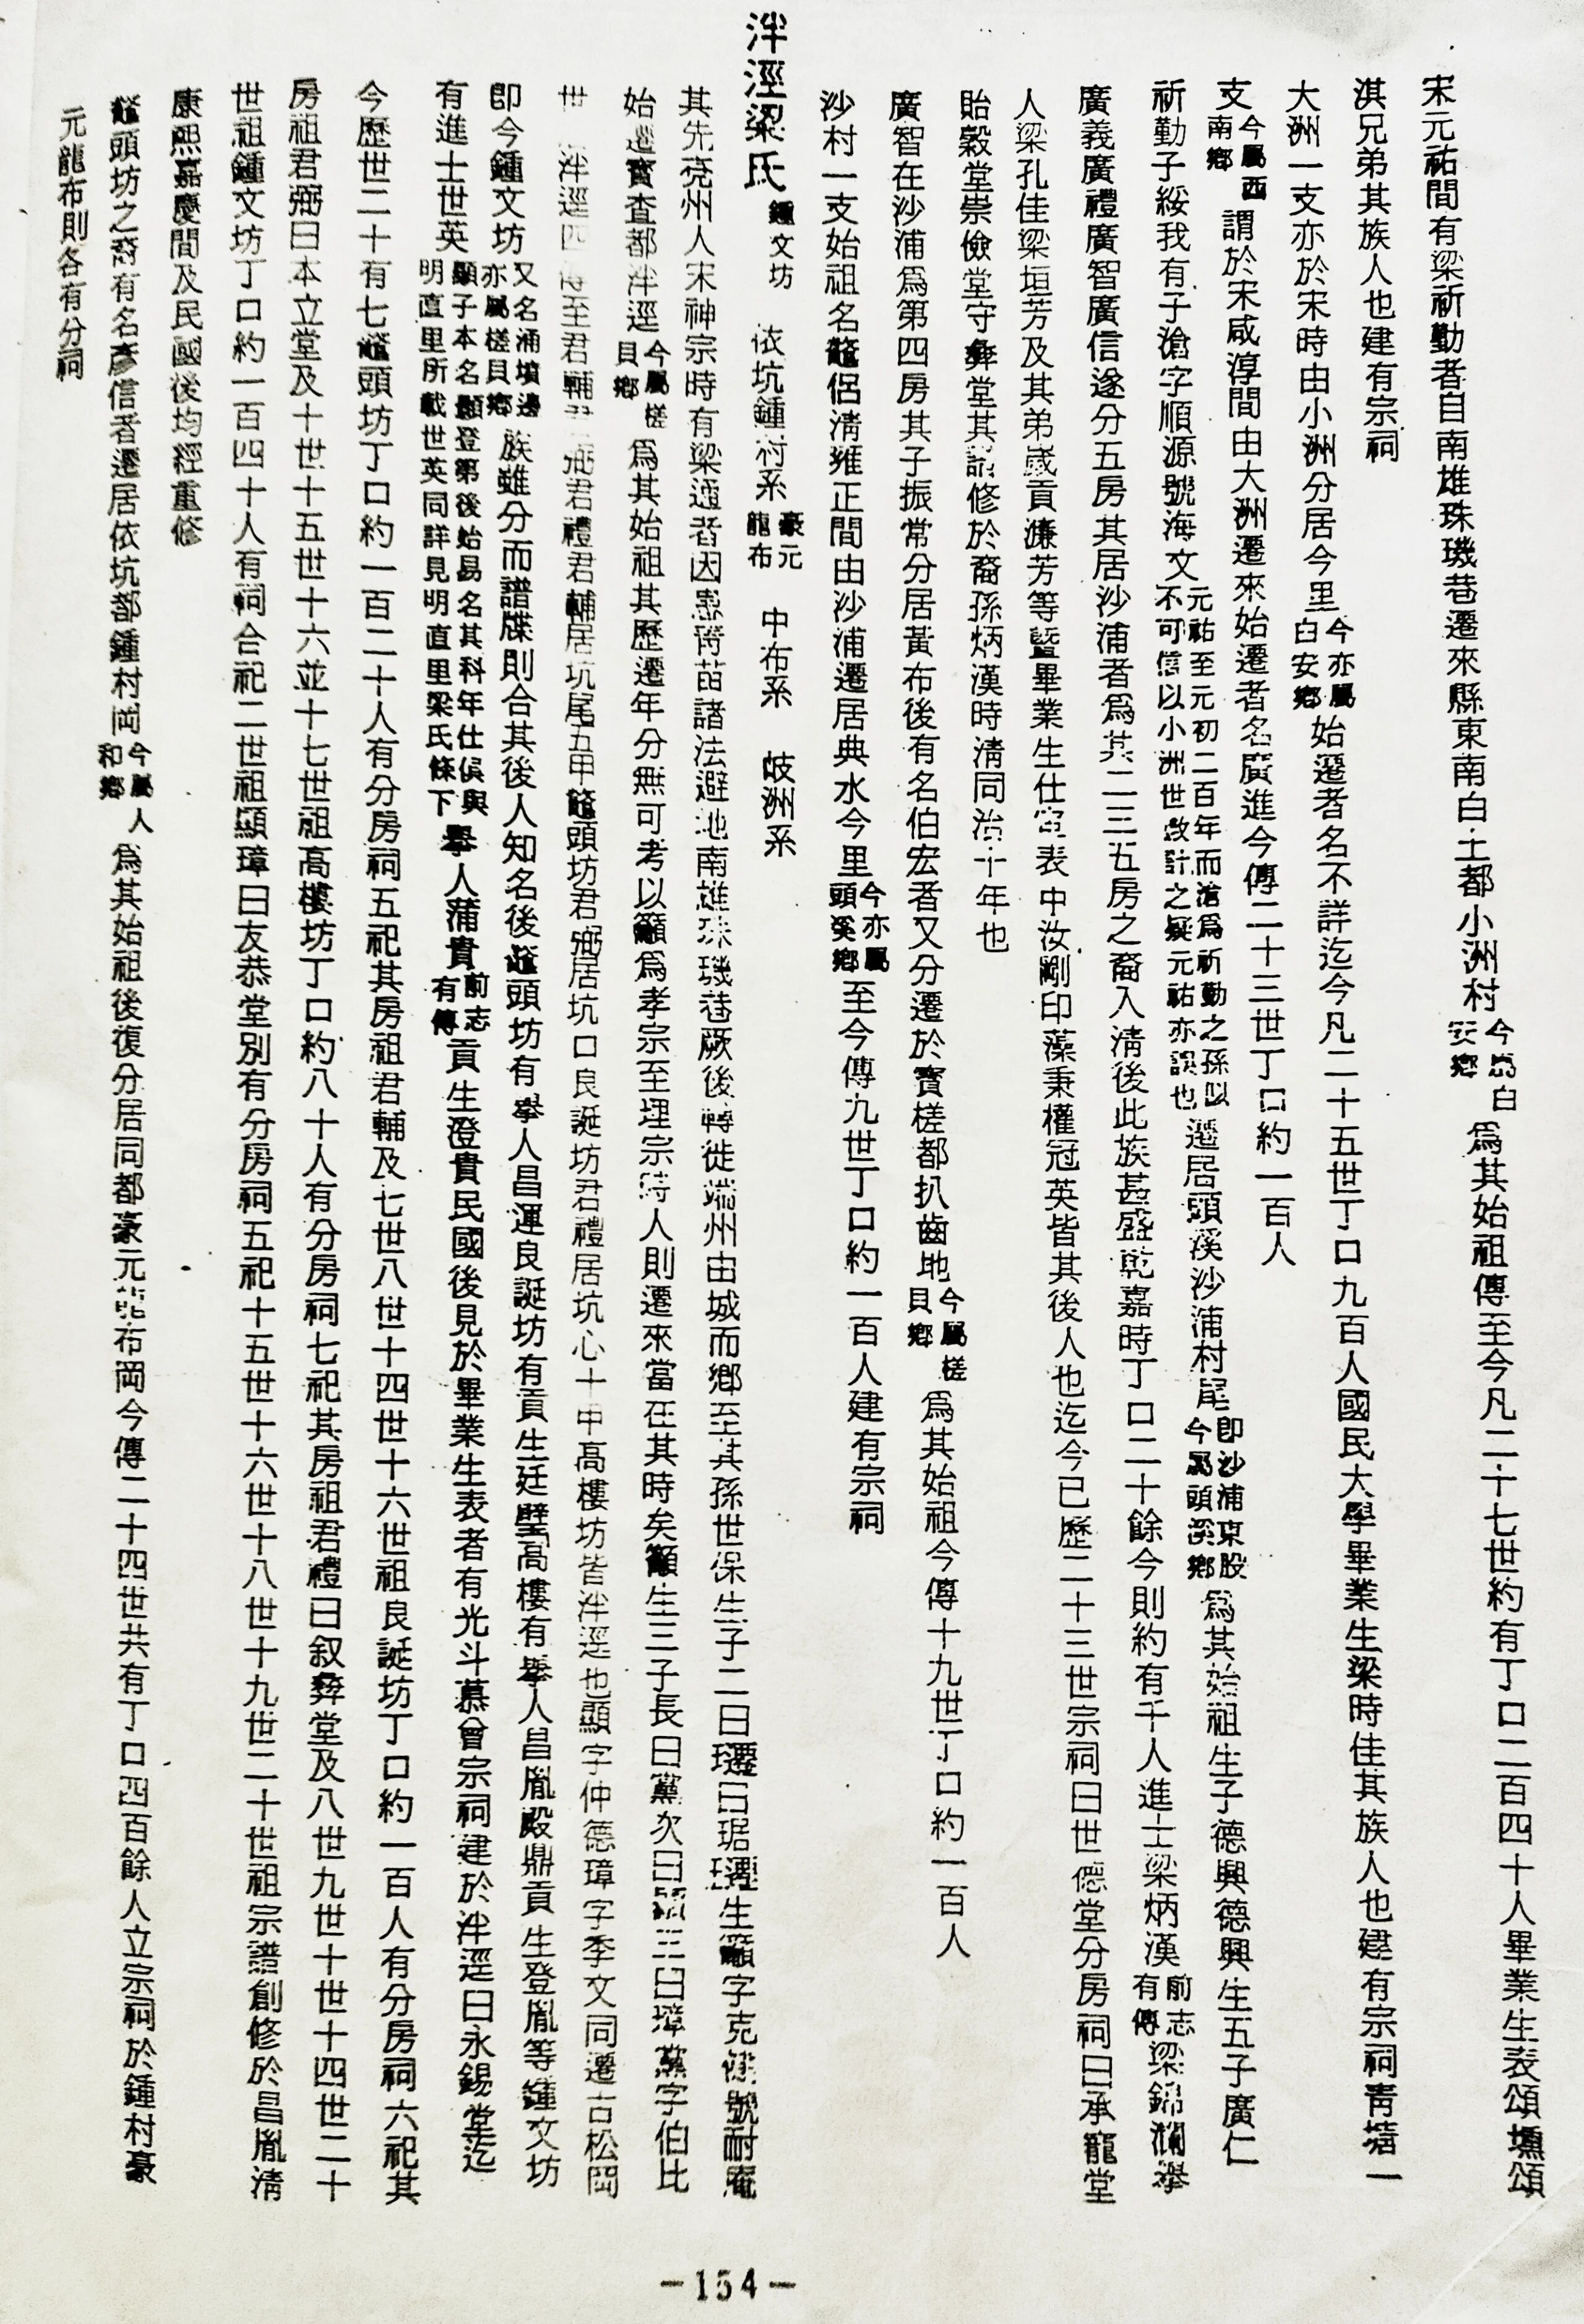 宋元祐間有梁祈勤者自南雄珠璣巷遷來縣東南白土都小洲村今屬白安鄉為其始祖傳至今凡二十七世約有丁口二百四十人畢業生表頌頌
淇兄弟其族人也建有宗祠
大洲一支亦於宋時由小洲分居今里今亦屬白安鄉始遷者名不詳迄今凡二十五世丁口九百人國民大學畢業生梁時佳其族人也建有宗祠青塘一
支今屬西南鄉謂於宋咸淳間由大洲遷來始遷者名廣進今傳二十三世丁口約一百人
祈勤子綏我有子滄字順源號海文元祐至元初二百年而滄為祈勤之孫似不可信以小洲世數計之疑元祐亦誤也遷居頭溪沙浦村尾即沙浦東股今屬頭溪鄉為其始祖生子德興德興生五子廣仁
廣義廣禮廣智廣信遂分五房其居沙浦者為其二三五房之裔入清後此族甚盛乾嘉時丁口二十餘今則約有千人進士梁炳漢前志有傳梁錦瀾舉
人梁孔佳梁垣芳及其弟歲貢濂芳等暨畢業生仕宦表中汝剛印藻秉權冠英皆其後人也迄今已歷二十三世宗祠曰世德堂分房祠曰承寵堂
貽穀堂崇儉堂守彝堂其譜修於裔孫炳漢時清同治十年也
廣智在沙浦為第四房其子振常分居黃布後有名伯宏者又分遷於寶槎都扒齒地今屬槎貝鄉為其始祖今傳十九世丁口約一百人
沙村一支始祖名鼇侶清雍正間由沙浦遷居典水今里今亦屬頭溪鄉至今傳九世丁口約一百人建有宗祠
泮逕梁氏 鍾文坊 依坑鍾村系 豪元龍布 中布系 岐洲系
其先兗州人宋神宗時有梁適者因患青苗諸法避地南雄珠璣巷厥後轉徙端州由城而鄉至其孫世保生子二曰曰琚生籲字克號耐庵
始遷寶查都泮逕今屬槎貝鄉為其始祖其歷遷年分無可考以籲為孝宗至理宗時人則遷來當在其時矣籲生三子長曰黨次曰顯三曰璋黨字伯比
世泮逕四傳至君輔君弼君禮君輔居坑尾五甲鼇頭坊君弼居坑口良誕坊君禮居坑心十甲高樓坊皆泮逕也顯字仲德璋字季文同遷古松岡
即今鍾文坊又名涌墳邊亦屬槎貝鄉族雖分而譜牒則合其後人知名後鼇頭坊有舉人昌運良誕坊有貢生廷璧高樓有舉人昌胤殿鼎貢生登胤等鍾文坊
有進士世英顯子本名顯登第後始易名其科年仕俱與明直里所載世英同詳見明直里梁氏條下舉人蒲貴前志有傳貢生澄貴民國後見於畢業生表者有光斗慕曾宗祠建於泮逕曰永錫堂迄
今歷世二十有七鼇頭坊丁口約一百二十人有分房祠五祀其房祖君輔及七世八世十四世十六世祖良誕坊丁口約一百人有分房祠六祀其
房祖君弼曰本立堂及十世十五世十六並十七世祖高樓坊丁口約八十人有分房祠七祀其房祖君禮曰叙彝堂及八世九世十世十四世二十
世祖鍾文坊丁口約一百四十人有祠合祀二世祖顯璋曰友恭堂別有分房祠五祀十五世十六世十八世十九世二十世祖宗譜創修於昌胤清
康熙嘉慶間及民國後均經重修
鼇頭坊之裔有名彥信者遷居依坑都鍾村岡今屬人和鄉為其始祖後復分居同都豪元龍布岡今傳二十四世共有丁口四百餘人立宗祠於鍾村豪
元龍布則各有分祠
-154-